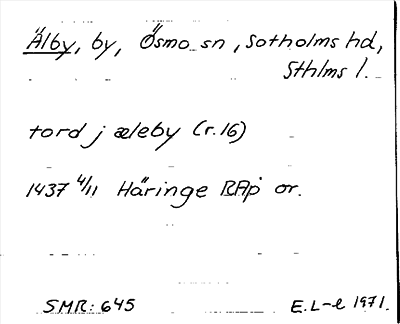 Älby, by, Ösmo sn, Sotholms hd,
Sthlms l.
tord j æleby (r.16)
1437 4/11 Häringe RAp or.
SMR: 645 E.L-l 1971.